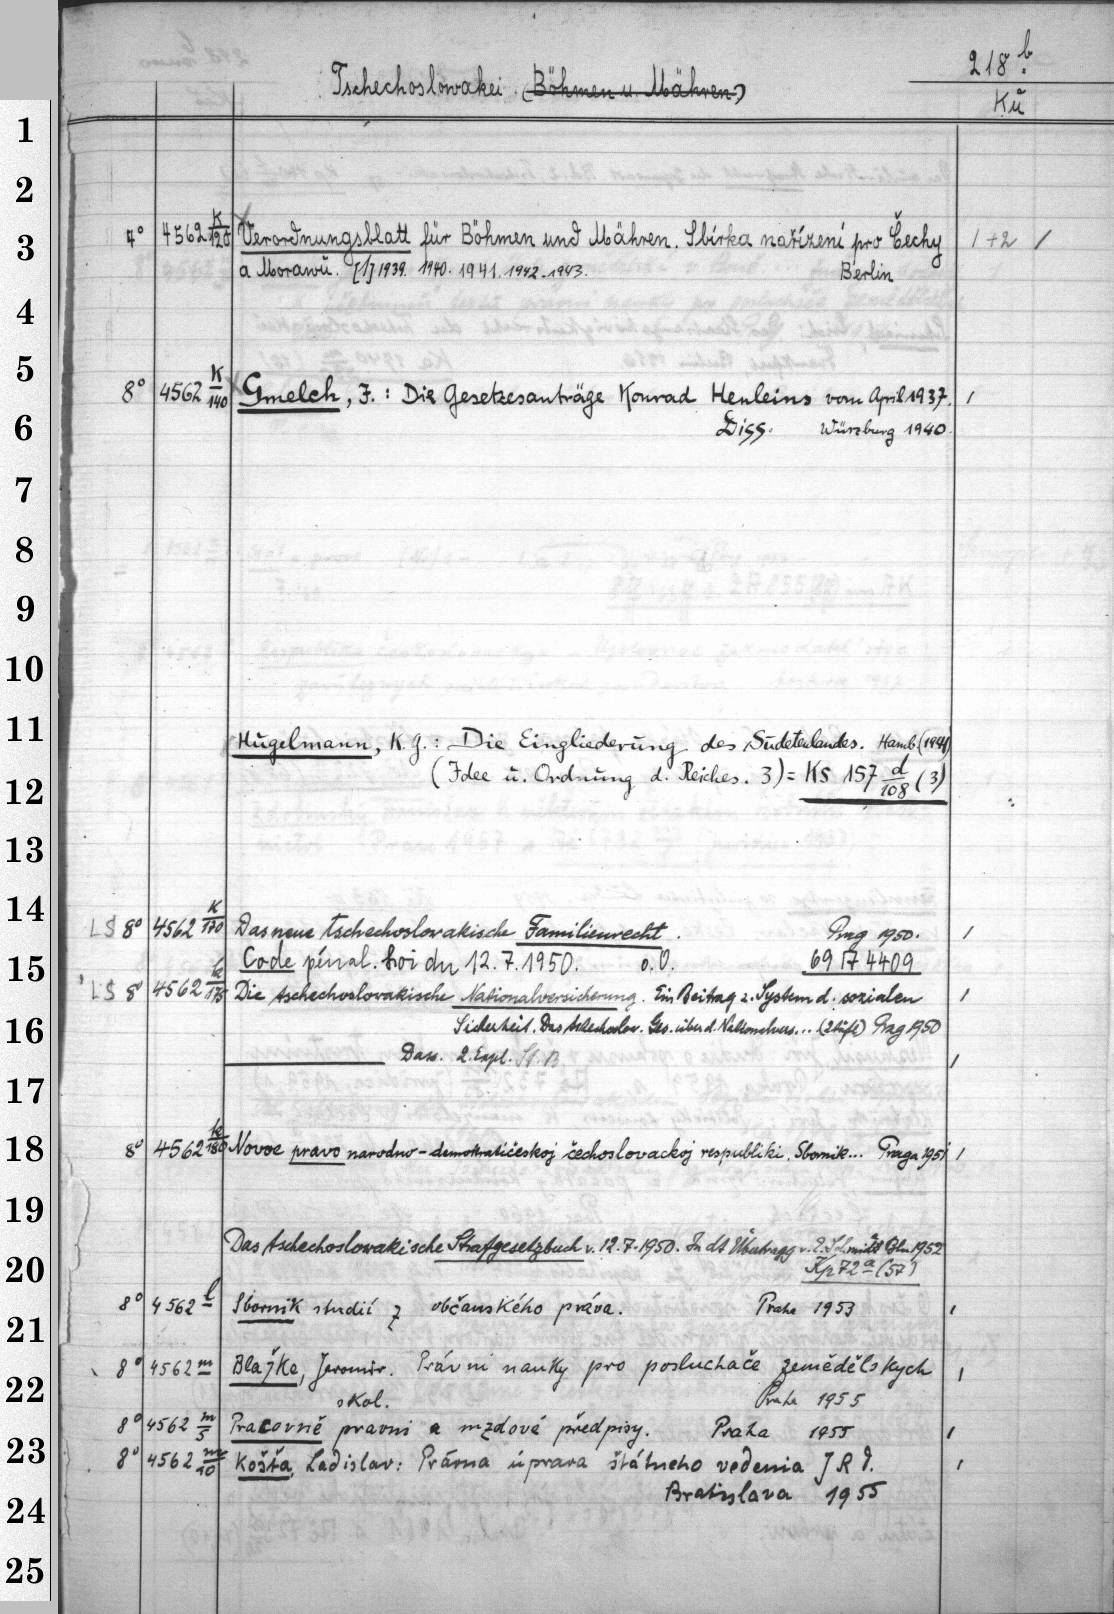 218 b.
Tschechoslowakei. (Böhmen u. Mähren)
Kü
1
2
3 4° 4562 K/120 Verordnungsblatt für Böhmen und Mähren. Sbírka nařízení pro Čechy 1+2 /
a Morawu. [1] 1939. 1940. 1941. 1942. 1943. Berlin
4
5 8° 4562 K/140 Gmelch, J.: Die Gesetzesanträge Konrad Henleins vom April 1937. /
6 Diss. Würzburg 1940.
7
8
9
10
11 Hugelmann, K. G.: Die Eingliederung des Sudetenlandes. Hamb. (1941)
12 (Idee u. Ordnung d. Reiches. 3) = Ks 157 d/108 (3)
13
14 LS 8° 4562 K/170 Das neue tschechoslovakische Familienrecht. Prag 1950. /
15 Code pénal. Loi du 12.7.1950. o.O. 69 I7 4409
LS 8° 4562 k/175 Die tschechoslovakische Nationalversicherung. Ein Beitrag z. System d. sozialen /
16 Sicherheit. Das tschechoslov. Ges. über d. ... (2 Aufl) Prag 1950
Dass. 2. Expl. St. B /
17
18 8° 4562 k/180 Novoe pravo narodno-demokratičeskoj čechoslovackoj respubliki. Sbornik... Praga 1951 /
19
Das tschechoslowakische Strafgesetzbuch v. 12.7.1950. In dt Übertragg v. E. Schmidt Bln 1952
20 Kp 72 a (57)
8° 4562 l Sborník studií z občanského práva. Praha 1953 /
21
8° 4562 m Blažke, Jeromir. Právni nauky pro posluchače zemědělskych /
22 škol. Praha 1955
8° 4562 m/5 Pracovně pravni a mzdové předpisy. Praha 1955 /
23 8° 4562 m/10 Košťa, Ladislav: Právna úprava štátneho vedenia JRD. /
24 Bratislava 1955
25